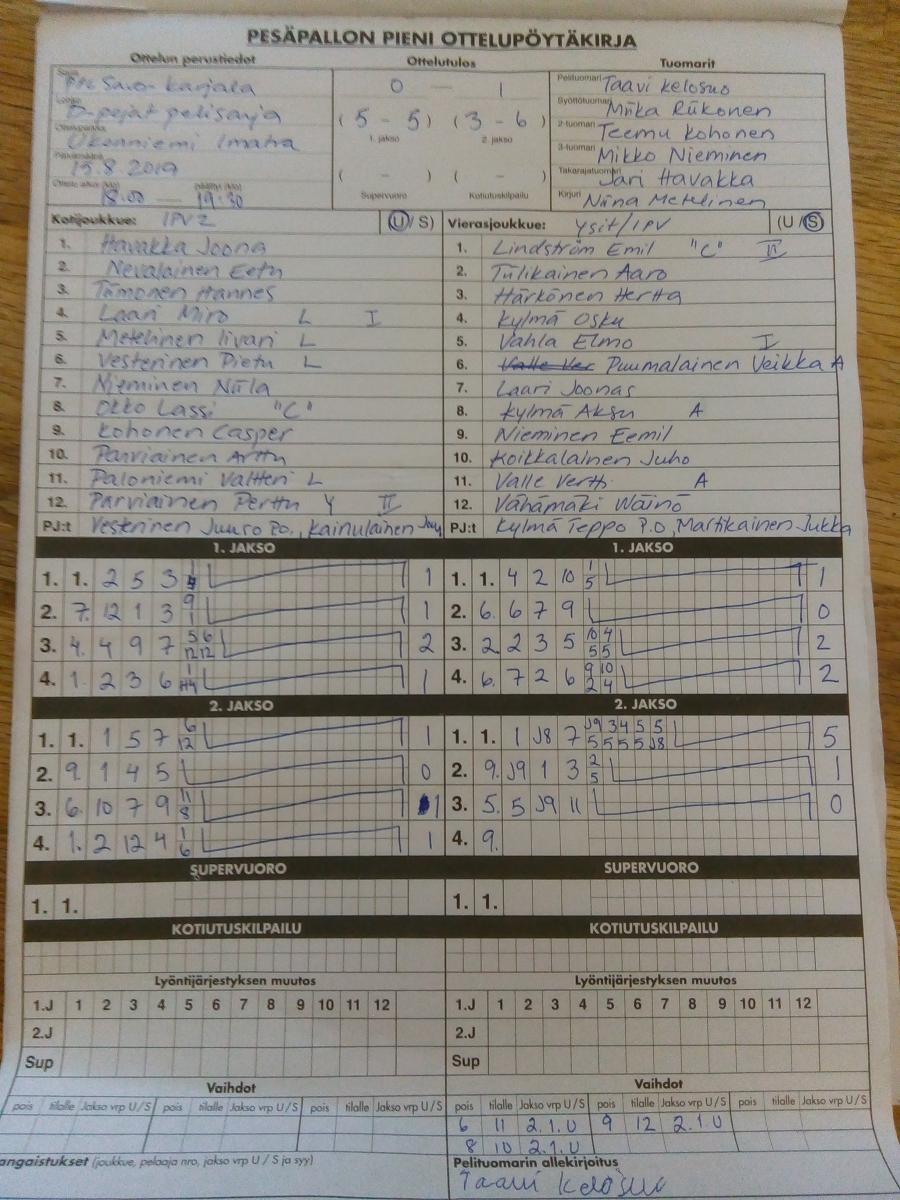 PESÄPALLON PIENI OTTELUPÖYTÄKIRJA
Ottelun perustiedot Ottelutulos Tuomarit
Savo-Karjala 0 — 1 Pelituomari Taavi Kelosuo
D-pojat pelisarja (5 - 5) (3 - 6) Syöttötuomari Miika Riikonen
1. jakso 2. jakso
Ukonniemi Imatra 2-tuomari Teemu Kohonen
15.8.2019 ( - ) ( - ) 3-tuomari Mikko Nieminen
Takarajatuomari Jari Havakka
18.00 — 19.30 Supervuoro Kotiutuskilpailu Kirjuri Niina Metelinen
Kotijoukkue: IPV2 (U/S) Vierasjoukkue: Ysit/IPV (U/S)
1. Havakka Joona 1. Lindström Emil "C" II
2. Nevalainen Eetu 2. Tulikainen Aaro
3. Tämonen Hannes 3. Härkönen Hertta
4. Laari Miro L I 4. Kylmä Osku
5. Metelinen Iivari L 5. Vahla Elmo I
6. Vesterinen Pietu L 6. Puumalainen Veikka A
7. Nieminen Niila 7. Laari Joonas
8. Okko Lassi "C" 8. Kylmä Aksu A
9. Kohonen Casper 9. Nieminen Eemil
10. Parviainen Arttu 10. Koikkalainen Juho
11. Paloniemi Valtteri L 11. Valle Vertti A
12. Parviainen Perttu Y II 12. Vähämäki Wäinö
PJ:t Vesterinen Juuso P.O., Kainulainen PJ:t Kylmä Teppo P.O, Martikainen Jukka
1. JAKSO 1. JAKSO
1. 1. 2 5 3 1 1. 1. 4 2 10 1 5 1
2. 7. 12 1 3 9 1 1 2. 6. 6 7 9 0
3. 4. 4 9 7 5 6 12 12 2 3. 2. 2 3 5 10 4 5 5 2
4. 1. 2 3 6 1 4. 6. 7 2 6 9 10 2 4 2
2. JAKSO 2. JAKSO
1. 1. 1 5 7 6 12 1 1. 1. 1 J8 7 J9 3 4 5 5 5 5 5 5 J8 5
2. 9. 1 4 5 0 2. 9. J9 1 3 2 5 1
3. 6. 10 7 9 11 8 1 3. 5. 5 J9 11 0
4. 1. 2 12 4 1 6 1 4. 9.
SUPERVUORO SUPERVUORO
1. 1. 1. 1.
KOTIUTUSKILPAILU KOTIUTUSKILPAILU
Lyöntijärjestyksen muutos Lyöntijärjestyksen muutos
1.J 1 2 3 4 5 6 7 8 9 10 11 12 1.J 1 2 3 4 5 6 7 8 9 10 11 12
2.J 2.J
Sup Sup
Vaihdot Vaihdot
pois tilalle Jakso vrp U/S pois tilalle Jakso vrp U/S pois tilalle Jakso vrp U/S pois tilalle Jakso vrp U/S pois tilalle Jakso vrp U/S pois tilalle Jakso vrp U/S
6 11 2.1.U 9 12 2.1.U
8 10 2.1.U
angaistukset (joukkue, pelaaja nro, jakso vrp U / S ja syy) Pelituomarin allekirjoitus
Taavi Kelosuo